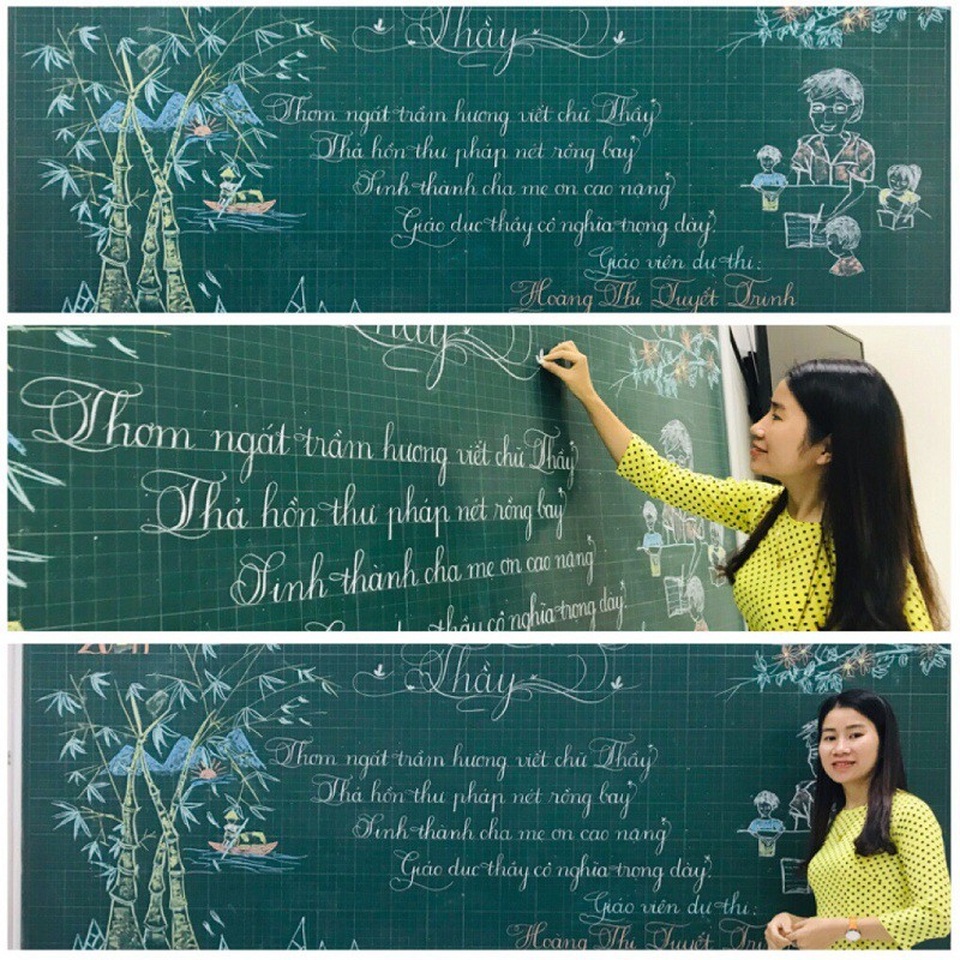 Thầy
Thơm ngát trầm hương viết chữ Thầy
Thả hồn thư pháp nét rồng bay
Sinh thành cha mẹ ơn cao nặng
Giáo dục thầy cô nghĩa trọng dày.
Giáo viên dự thi:
Hoàng Thị Tuyết Trinh
Thầy
Thơm ngát trầm hương viết chữ Thầy
Thả hồn thư pháp nét rồng bay
Sinh thành cha mẹ ơn cao nặng
thầy cô nghĩa trọng dày.
Thầy
Thơm ngát trầm hương viết chữ Thầy
Thả hồn thư pháp nét rồng bay
Sinh thành cha mẹ ơn cao nặng
Giáo dục thầy cô nghĩa trọng dày.
Giáo viên dự thi:
Hoàng Thị Tuyết